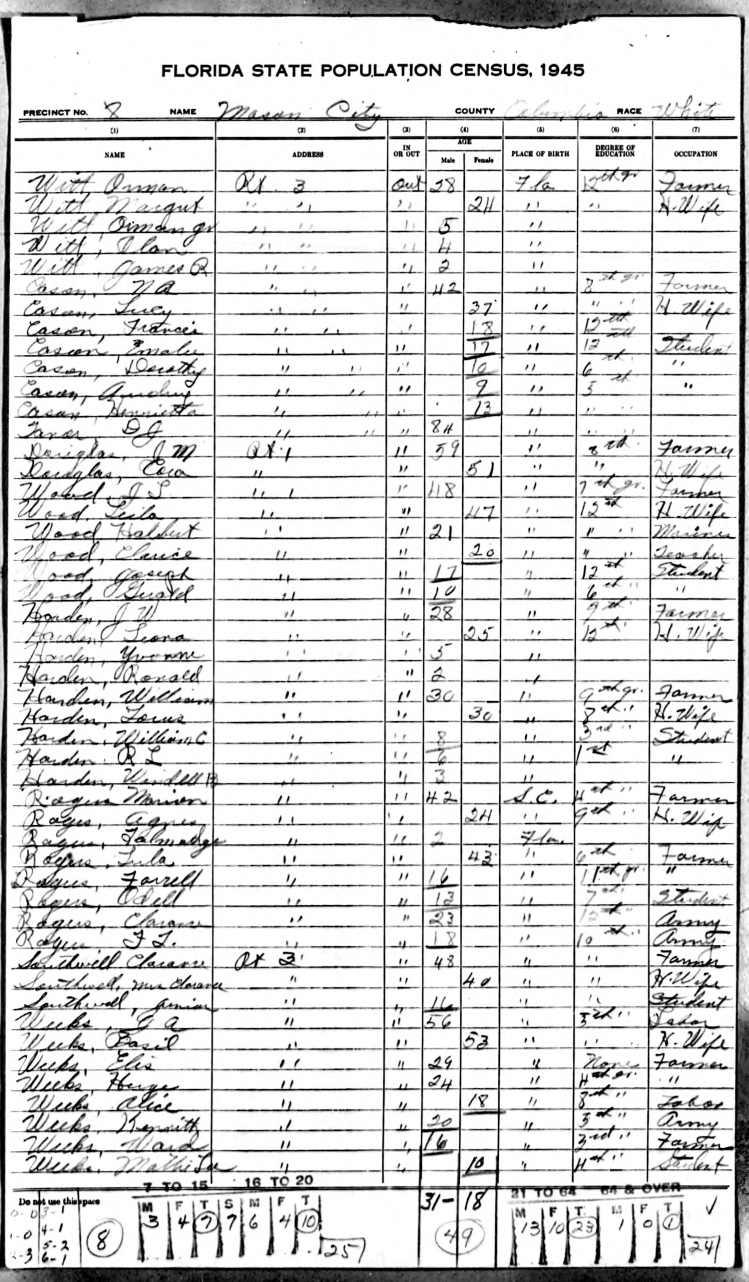 FLORIDA STATE POPULATION CENSUS, 1945
PRECINCT NO. 8 NAME Mason City COUNTY Columbia RACE White
(1) (2) (3) (4) (5) (6) (7)
NAME ADDRESS IN OR OUT AGE Male Female PLACE OF BIRTH DEGREE OF EDUCATION OCCUPATION
Witt, Orman Rt. 3 Out 28 Fla 12th gr. Farmer
Witt, Margut " " " " 24 " " H. Wife
Witt, Orman Jr " " " " 5 "
Witt, Olan " " " 4 "
Witt, James R " " " 2 "
Cason, N A " " " 42 " 8th gr. Farmer
Cason, Lucy " " " 37 " " " H. Wife
Cason, Francis " " " " 18 " 12th
Cason, Emalie " " " " 17 " 12th Student
Cason, Dorothy " " " 10 " 6th "
Cason, Audrey " " " 9 " "
Cason, Henrietta " " " 13 " " "
D J " " " 84 " " "
Douglas, J M Rt. 1 " 59 " 8th Farmer
Douglas, Cora " " 51 " " H. Wife
Wood, J L " 1 " 48 " 7th gr. Farmer
Wood, Leila " " 47 " 12th H. Wife
Wood Halbert " " 21 " " "
Wood, Clarice " " 20 " " " Teacher
Wood, Joseph " " 17 " 12th Student
Wood, Gerald " " 10 " 6th "
Harden, J W " " 28 " Farmer
Harden Leona " " 25 " 12th H. Wife
Harden, Yvonne " " 5 "
Harden, Ronald " " 2 "
Harden, William " " 30 " 9th gr. Farmer
Harden, " " 30 " 8th " H. Wife
Harden, William C " " 8 " 3rd " Student
Harden R L " " 6 " 1st "
Harden, Windell B " " 3 "
Rogers Marion " " 42 S.C. 4th " Farmer
Rogers, Agnes " " 24 " 9th " H. Wife
Rogers, Talmadge " " 2 Fla.
Rogers, Lula " " 43 " 6th " Farmer
Rogers, Farrell " " 16 " 11th gr. "
Rogers, Odell " " 13 " 7th " Student
Rogers, Clarance " " 23 " 12th " Army
Rogers F. L. " " 18 " 10th " Army
Southwell Clarance Rt 3 " 48 " " Farmer
Southwell, Mrs Clarance " " 40 " " H. Wife
Southwell, Junior " " 16 " " Student
Weeks, J A " " 56 " " Labor
Weeks, Basil " " 53 " " " H. Wife
Weeks, Elis " " 29 " None Farmer
Weeks, " " 24 " 4th gr. "
Weeks, Alice " " 18 " 8th " Labor
Weeks, Kennith " " 20 " " Army
Weeks, Ward " " 16 " 3rd " Farmer
Weeks, Mathi Lee " " 10 " 4th " Student
Do not use this space 7 TO 15 16 TO 20 31- 18 21 TO 64 64 & OVER
M F T S M F T M F T M F T
3 4 7 7 6 4 10 13 10 23 1 0 1
0-0 3-1
1-0 4-1
5-2
-3 6-1
8 25 49 24